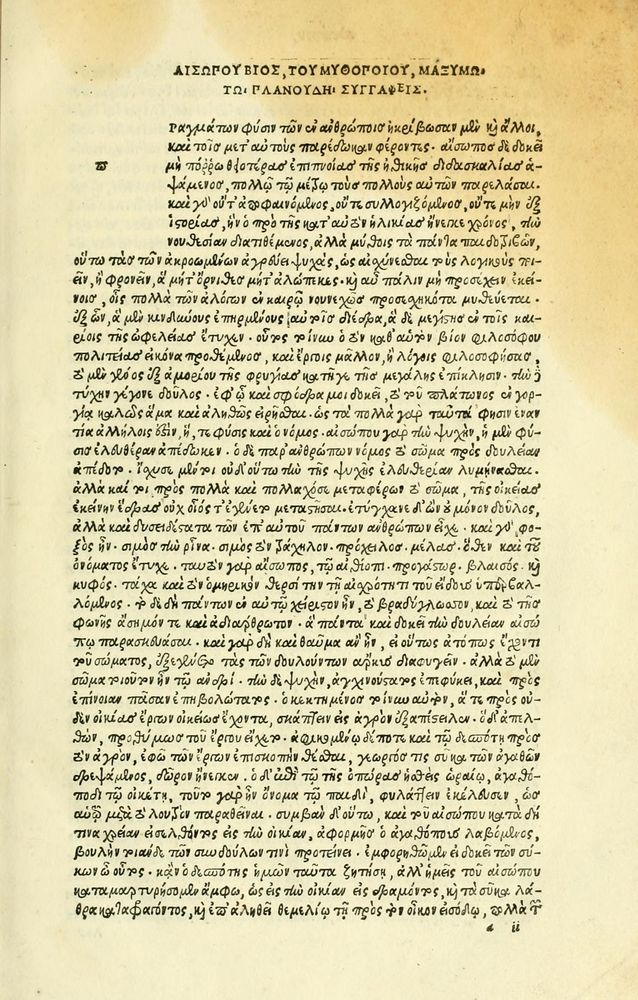 ΑΙΣΩΠΟΥ ΒΙΟΣ, ΤΟΥ ΜΥΘΟΠΟΙΟΥ, ΜΑΞΥΜΩ
ΤΩ͂Ι ΠΛΑΝΟΥΔΗΙ ΣΥΓΓΑΦΕΙΣ.
Ραγμάτων φύσιν τῶν ἐν ἀνθρώποις ἠκρίβωσαν μὲν καὶ ἄλλοι,
καὶ τοῖς μετ' αὐτοὺς παρέδωκαν φέροντες. αἴσωπος δὲ δοκεῖ
π
μὴ πόῤῥω θειοτέρας ἐπιπνοίας τῆς ἠθικῆς διδασκαλίας ἁ-
ψάμενος, πολλῷ τῷ μέτρῳ τοὺς πολλοὺς αὐτῶν παρελάσαι.
καὶ γὰρ οὔτ' ἀποφαινόμενος, οὔτε συλλογιζόμενος, οὔτε μὴν ἐξ
ἱστορίας, ἣν ὁ πρὸ τῆς κατ' αὐτὸν ἡλικίας ἤνεγκε χρόνος, τὴν
νουθεσίαν διατιθέμενος, ἀλλὰ μύθοις τὰ πάντα παιδοτριβῶν,
οὕτω τὰς τῶν ἀκροωμένων ἀγρεύει ψυχὰς, ὡς αἰσχύνεσθαι τοὺς λογικοὺς ποι-
εῖν, ἢ φρονεῖν, ἃ μήτ' ὄρνιθες μήτ' ἀλώπεκες. καὶ αὖ πάλιν μὴ προσέχειν ἐκεί-
νοις, οἷς πολλὰ τῶν ἀλόγων ἐν καιρῷ νουνεχῶς προσεσχηκότα μυθεύεται.
ἐξ ὧν, ἃ μὲν κινδύνους ἐπηρμένους αὐτοῖς διέδρα, ἃ δὲ μεγίστης ἐν τοῖς και-
ρίοις τῆς ὠφελείας ἔτυχεν. οὗτος τοίνυν ὁ τὸν καθ' αὑτὸν βίον φιλοσόφου
πολιτείας εἰκόνα προθέμενος, καὶ ἔργοις μᾶλλον, ἢ λόγοις φιλοσοφήσας,
τὸ μὲν γένος ἐξ ἀμορίου τῆς φρυγίας κατῆγε τῆς μεγάλης ἐπίκλησιν. τὴν δὲ
τύχην γέγονε δοῦλος. ἐφ' ᾧ καὶ σφόδρα μοι δοκεῖ, τὸ τοῦ πλάτωνος ἐν γορ-
γίᾳ καλῶς ἅμα καὶ ἀληθῶς εἰρῆσθαι. ὡς τὰ πολλὰ γὰρ ταῦτά φησιν ἐναν
τία ἀλλήλοις ἐστὶν, ἥ, τε φύσις καὶ ὁ νόμος. αἰσώπου γὰρ τὴν ψυχὴν, ἡ μὲν φύ-
σις ἐλευθέραν ἀπέδωκεν. ὁ δὲ παρ' ἀνθρώπων νόμος τὸ σῶμα πρὸς δουλείαν
ἀπέδοτο. ἴσχυσε μέντοι οὐδ' οὕτω τὴν τῆς ψυχῆς ἐλευθερίαν λυμήνασθαι.
ἀλλὰ καί τοι πρὸς πολλὰ καὶ πολλαχόσε μεταφέρων τὸ σῶμα, τῆς οἰκείας
ἐκείνην ἕδρας οὐχ οἷός τ' ἐγένετο μεταστῆσαι. ἐτύγχανε δ' ὢν οὐ μόνον δοῦλος,
ἀλλὰ καὶ δυσειδέστατα τῶν ἐπ' αὐτοῦ πάντων ἀνθρώπων εἶχε. καὶ γὰρ φο-
ξὸς ἦν. σιμὸς τὴν ῥῖνα. σιμὸς τὸν τράχηλον. πρόχειλος. μέλας. ὅθεν καὶ τοῦ
ὀνόματος ἔτυχε. ταυτὸν γὰρ αἴσωπος, τῷ αἰθίοπι. προγάστωρ. βλαισός. καὶ
κυφός. τάχα καὶ τὸν ὁμηρικὸν θερσίτην τῇ αἰσχρότητι τοῦ εἴδους ὑπερβαλ-
λόμενος. τὸ δὲ δὴ πάντων ἐν αὐτῷ χείριστον ἦν, τὸ βραδύγλωσσον, καὶ τὸ τῆς
φωνῆς ἄσημόν τε καὶ ἀδιάρθρωτον. ἃ πάντα καὶ δοκεῖ τὴν δουλείαν αἰσώ
πῳ παρασκευάσαι. καὶ γὰρ δὴ καὶ θαῦμα ἂν ἦν, εἰ οὕτως ἀτόπως ἔχοντι
τοῦ σώματος, ἐξεγένετο τὰς τῶν δουλούντων ἄρκυς διαφυγεῖν. ἀλλὰ τὸ μὲν
σῶμα τοιοῦτον ἦν τῷ ἀνδρί. τὴν δὲ ψυχὴν, ἀγχινούστατος ἐπεφύκει, καὶ πρὸς
ἐπίνοιαν πᾶσαν ἐπηβολώτατος. ὁ κεκτημένος τοίνυν αὐτὸν, ἅτε πρὸς οὐ-
δὲν οἰκίας ἔργον οἰκείως ἔχοντα, σκάπτειν εἰς ἀγρὸν ἐξαπέστειλεν. ὁ δ' ἀπελ-
θὼν, προθύμως τοῦ ἔργου εἴχετο. ἀφικομένῳ δέ ποτε καὶ τῷ δεσπότῃ πρὸς
τὸν ἀγρὸν, ἐφ' ᾧ τῶν ἔργων ἐπισκοπὴν θέσθαι, γεωργός τις σῦκα τῶν ἀγαθῶν
δρεψάμενος, δῶρον ἤνεγκεν. ὁ δ' ἐπὶ τῷ τῆς ὀπώρας ἡσθεὶς ὡραίῳ, ἀγαθό-
ποδι τῷ οἰκέτῃ, τοῦτο γὰρ ἦν ὄνομα τῷ παιδὶ, φυλάττειν ἐκέλευσεν, ὡς
αὐτῷ μετὰ τὸ λουτρὸν παραθεῖναι. συμβὰν δ' οὕτω, καὶ τοῦ αἰσώπου κατὰ δή
τινα χρείαν εἰσελθόντος εἰς τὴν οἰκίαν, ἀφορμῆς ὁ ἀγαθόπους λαβόμενος,
βουλὴν τοιάνδε τῶν συνδούλων τινὶ προτείνει. ἐμφορηθῶμεν εἰ δοκεῖ τῶν σύ-
κων ὦ οὗτος. κἂν ὁ δεσπότης ἡμῶν ταῦτα ζητήσῃ, ἀλλ' ἡμεῖς τοῦ αἰσώπου
καταμαρτυρήσομεν ἄμφω, ὡς εἰς τὴν οἰκίαν εἰσδραμόντος, καὶ τὰ σῦκα λά-
θρα καταφαγόντος, καὶ ἐπ' ἀληθεῖ θεμελίῳ τῇ πρὸς τὸν οἶκον εἰσόδῳ, πολλὰ τῶν
a ii